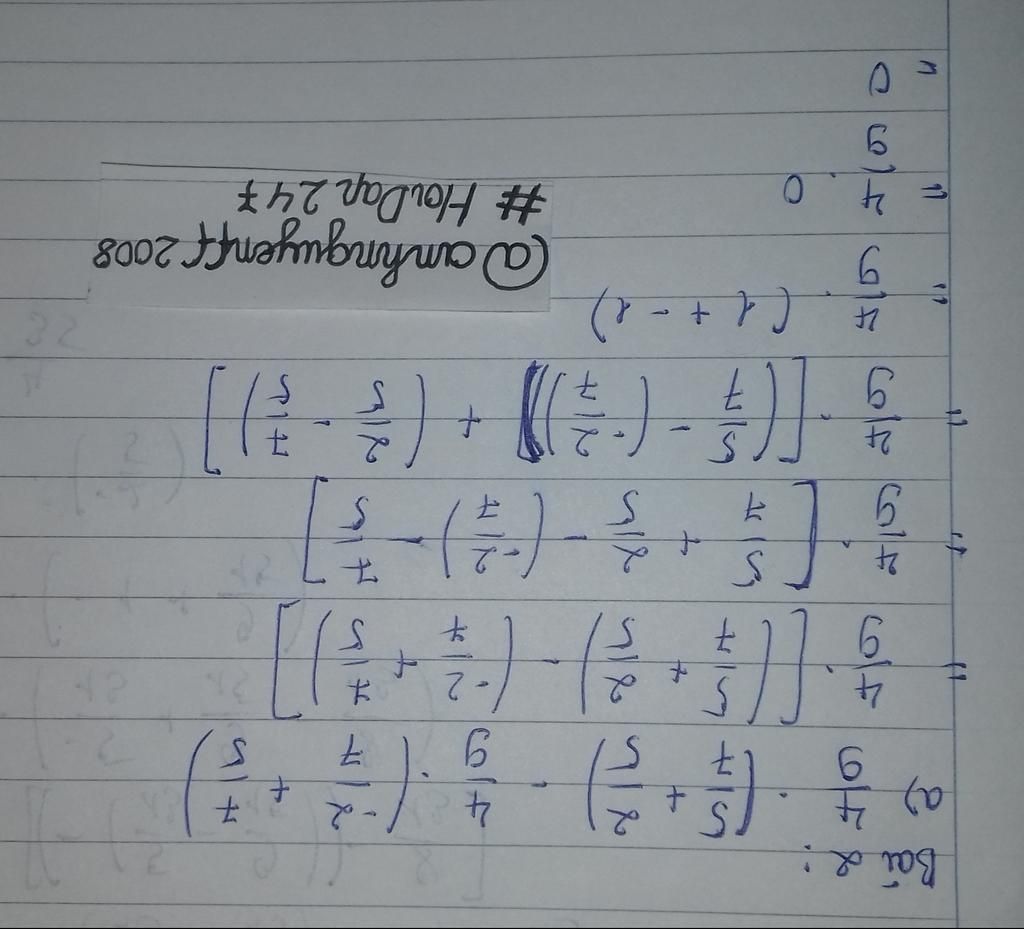 Bài 2:
a) 4/9 . (5/7 + 2/5) - 4/9 . (-2/7 + 7/5)
= 4/9 . [(5/7 + 2/5) - (-2/7 + 7/5)]
= 4/9 . [5/7 + 2/5 - (-2/7) - 7/5]
= 4/9 . [(5/7 - (-2/7)) + (2/5 - 7/5)]
= 4/9 . (1 + -1)
= 4/9 . 0
= 0
@anhnguyenff2008
# HoiDap247